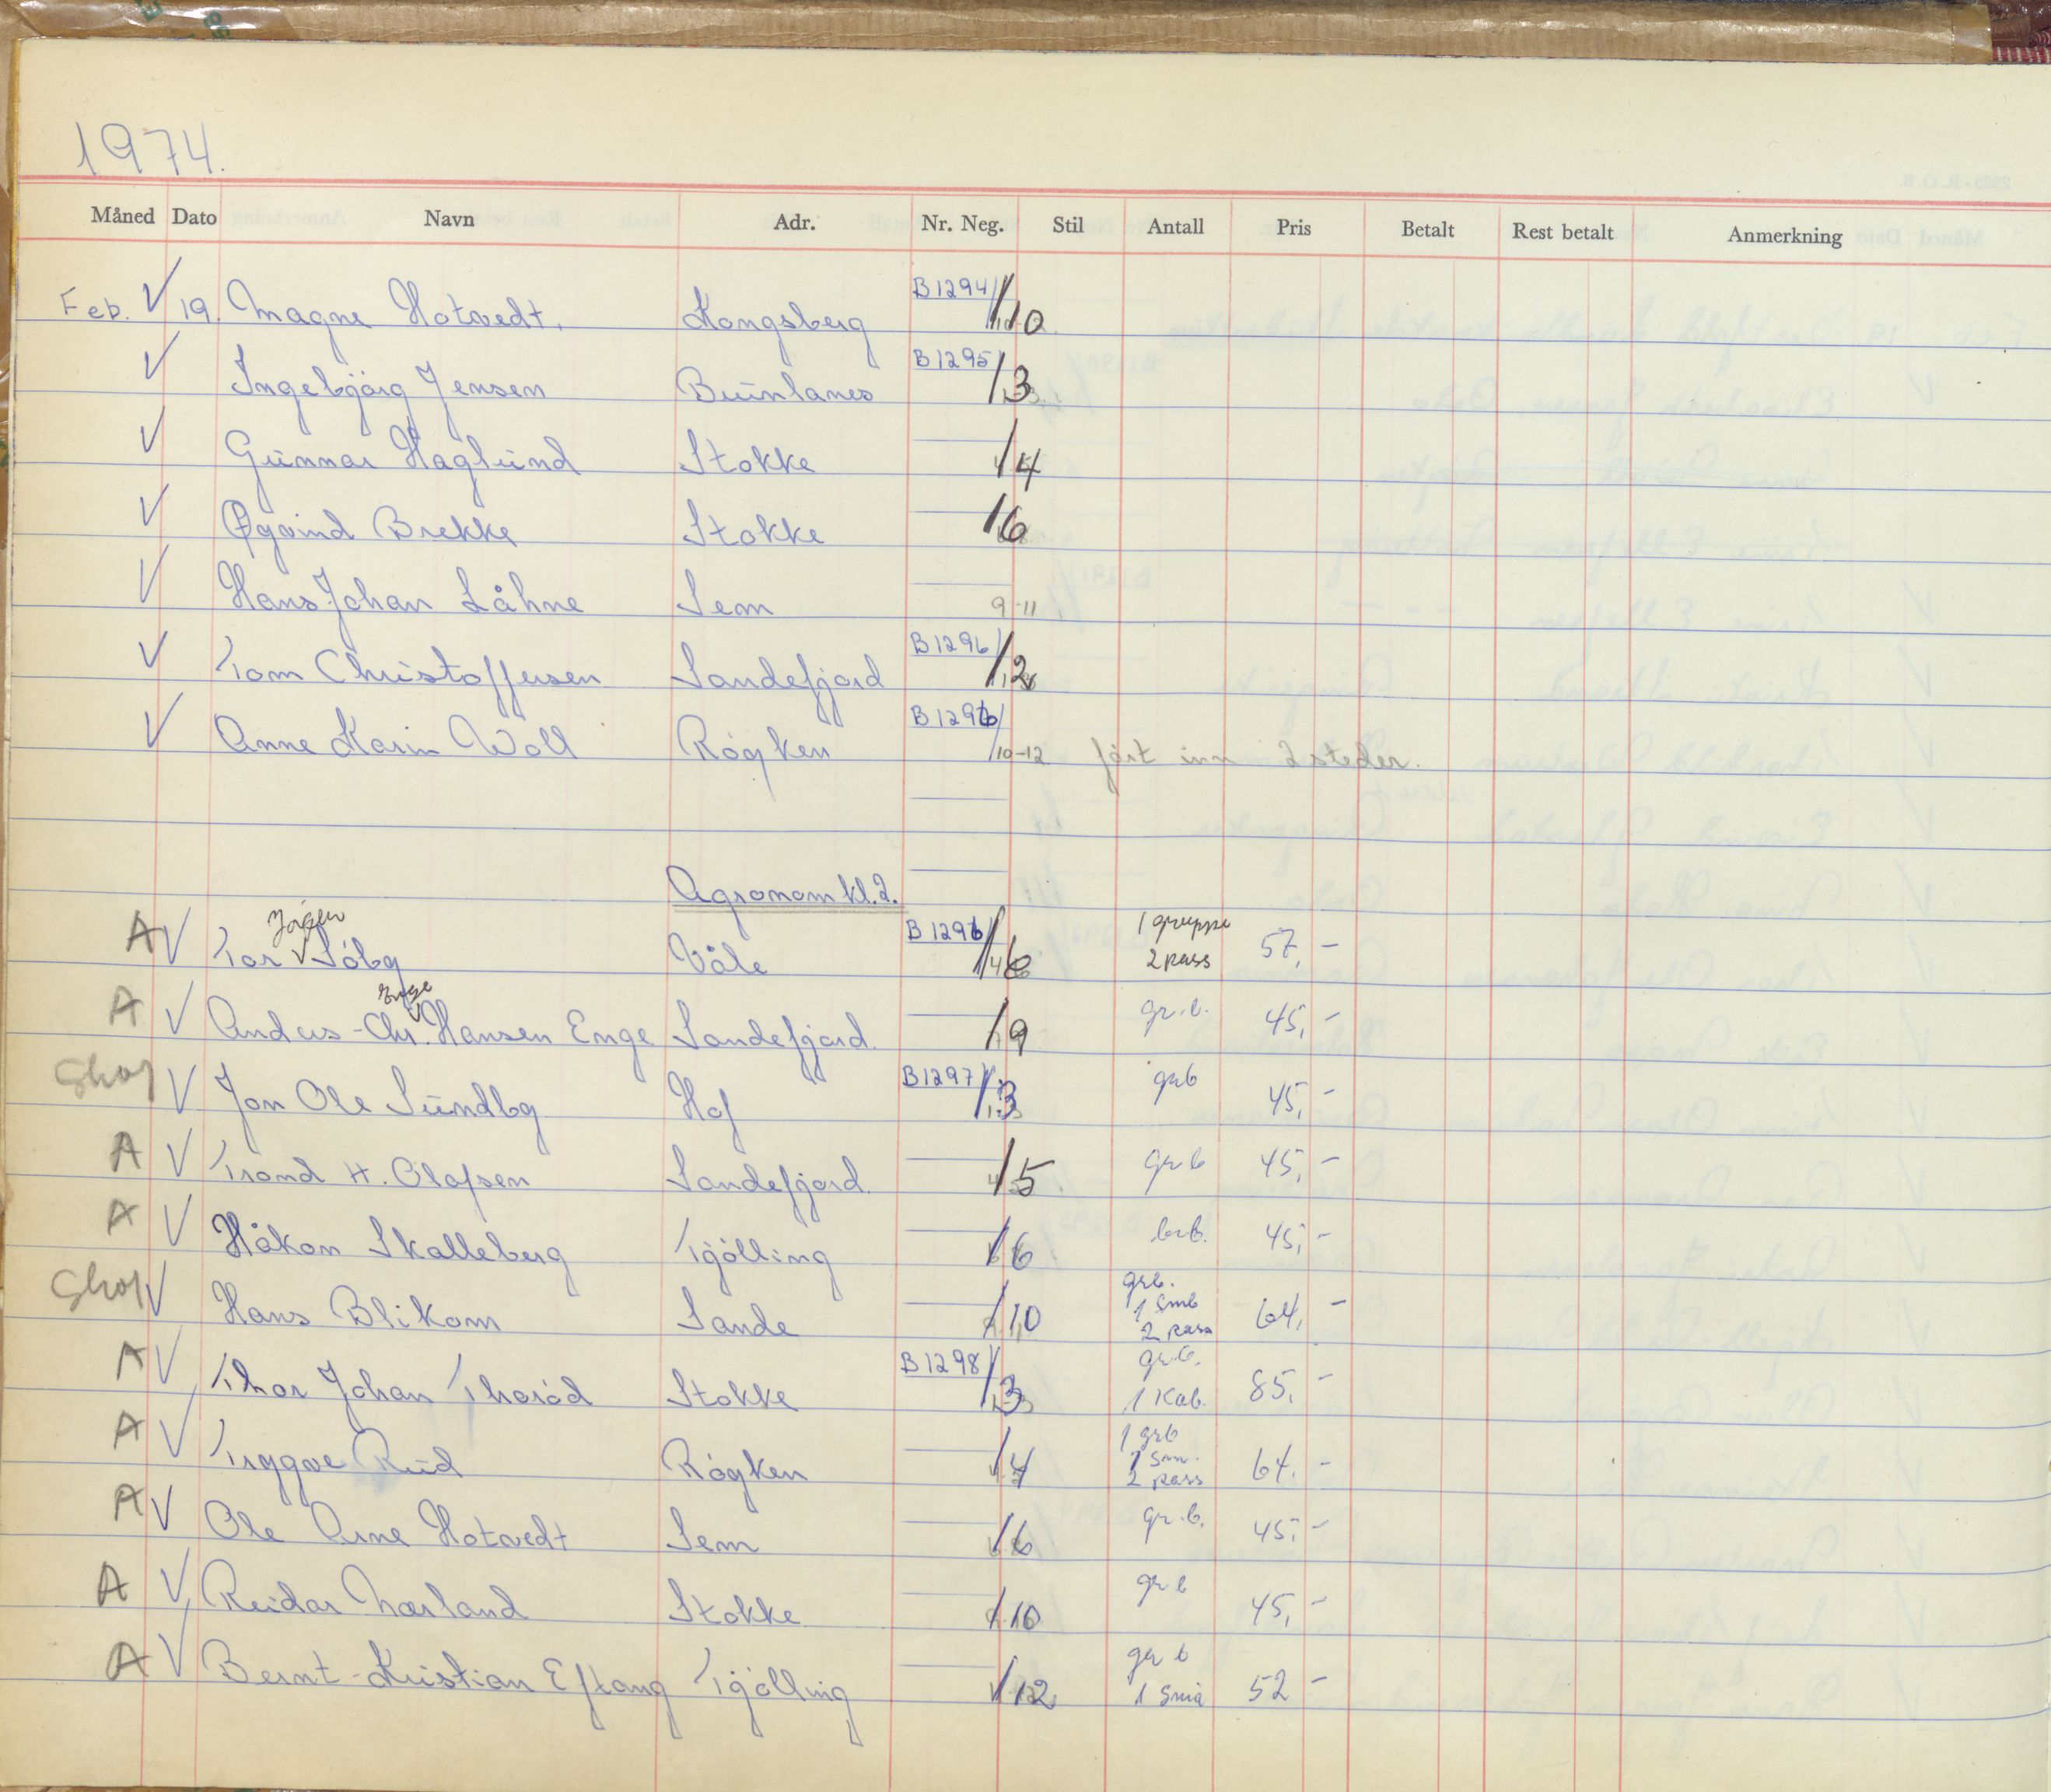 1974.
Måned Dato Navn Adr. Nr. Neg. Stil Antall Pris Betalt Rest betalt Anmerkning
Feb. V 19. Magne Hotvedt. Kongsberg B1294/10
V Ingebjörg Jensen Brünlanes B1295/3
V Günnar Haglünd Stokke /4
V Øyvind Brekke Stokke /6
V Hans Johan Låhne Sem 9-11
V Tom Christoffersen Sandefjord B1296/2
V Anne Karin Woll Röyken B1296/10-12 fört inn 2 steder.
Agronom kl. 2.
Jörgen 1 gruppe
A V Tor V Söby Våle B1296/6 2 pass 57,-
Enge
A V Anders-Chr. Hansen Enge Sandefjord. /9 gr.b. 45,-
V Jon Ole Sündby Hof B1297/3 grb 45,-
A V Trond H. Olafsen Sandefjord. /5 grb 45,-
A V Håkon Skalleberg Tjölling /6 45,-
grb.
V Hans Blikom Sande /10 1 smb 64,-
2 pass
gr.b.
A V Thor Johan Thoröd Stokke B1298/3 1 Kab. 85,-
1 grb
A V Tryggve Rüd Röyken /4 1 sm. 64,-
2 pass
A V Ole Arne Hotvedt Sem /6 gr.b. 45,-
A V Reidar Nærland Stokke /10 gr b 45,-
gr b
A V Bernt-Kristian Eftang Tjölling /12 1 små 52 -